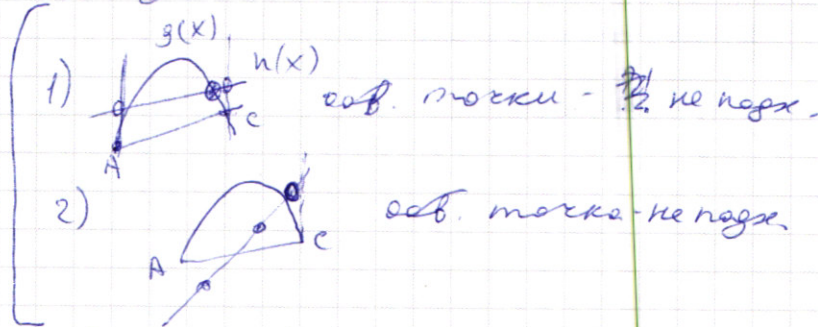 g(x)
h(x)
1) A C обв. точки - не подх.
2) A C обв. точка - не подх.